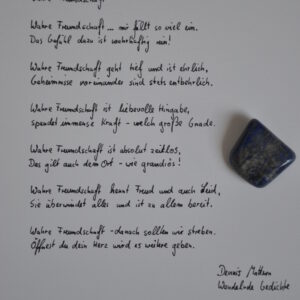 Wahre Freundschaft
Wahre Freundschaft ... mir fällt so viel ein.
Das Gefühl dazu ist wahrhaftig mein!
Wahre Freundschaft geht tief und ist ehrlich,
Geheimnisse voreinander sind stets entbehrlich.
Wahre Freundschaft ist liebevolle Hingabe,
spendet immense Kraft - welch große Gnade.
Wahre Freundschaft ist absolut zeitlos,
Das gilt auch dem Ort - wie grandios!
Wahre Freundschaft kennt Freud und auch Leid,
Sie überwindet alles und ist zu allem bereit.
Wahre Freundschaft - danach sollten wir streben.
Öffnest du dein Herz wird es weitere geben.
Dennis
Wandelnde Gedichte